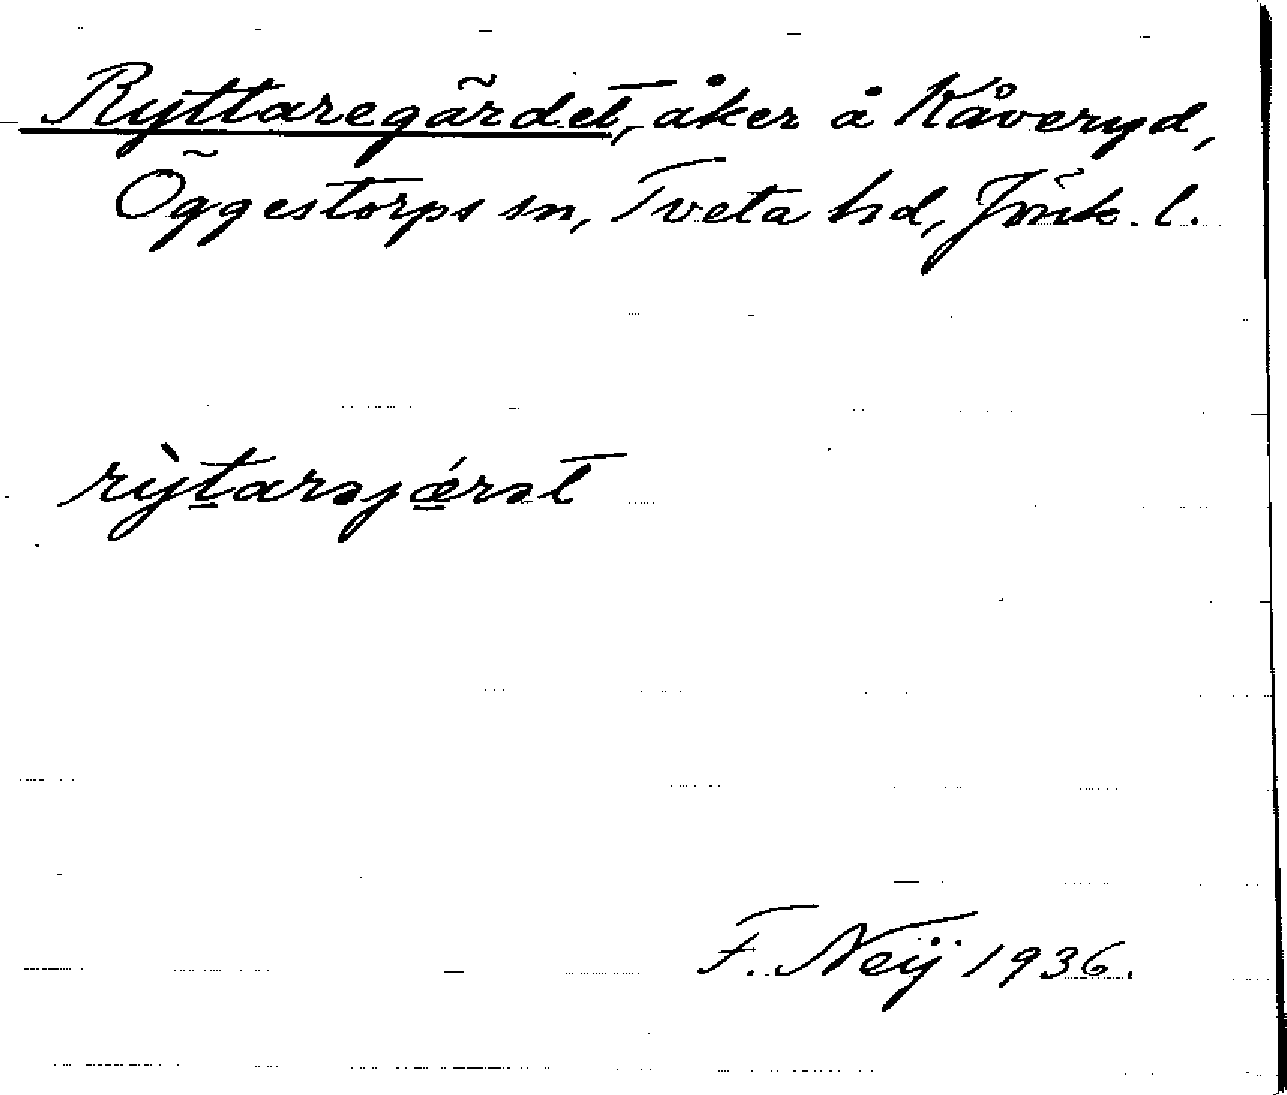 Ryttaregärdet, åker å Kåveryd,
Öggestorps sn, Tveta hd, Jönk. l.
rỳtarəjǽrət
F. Neij 1936.